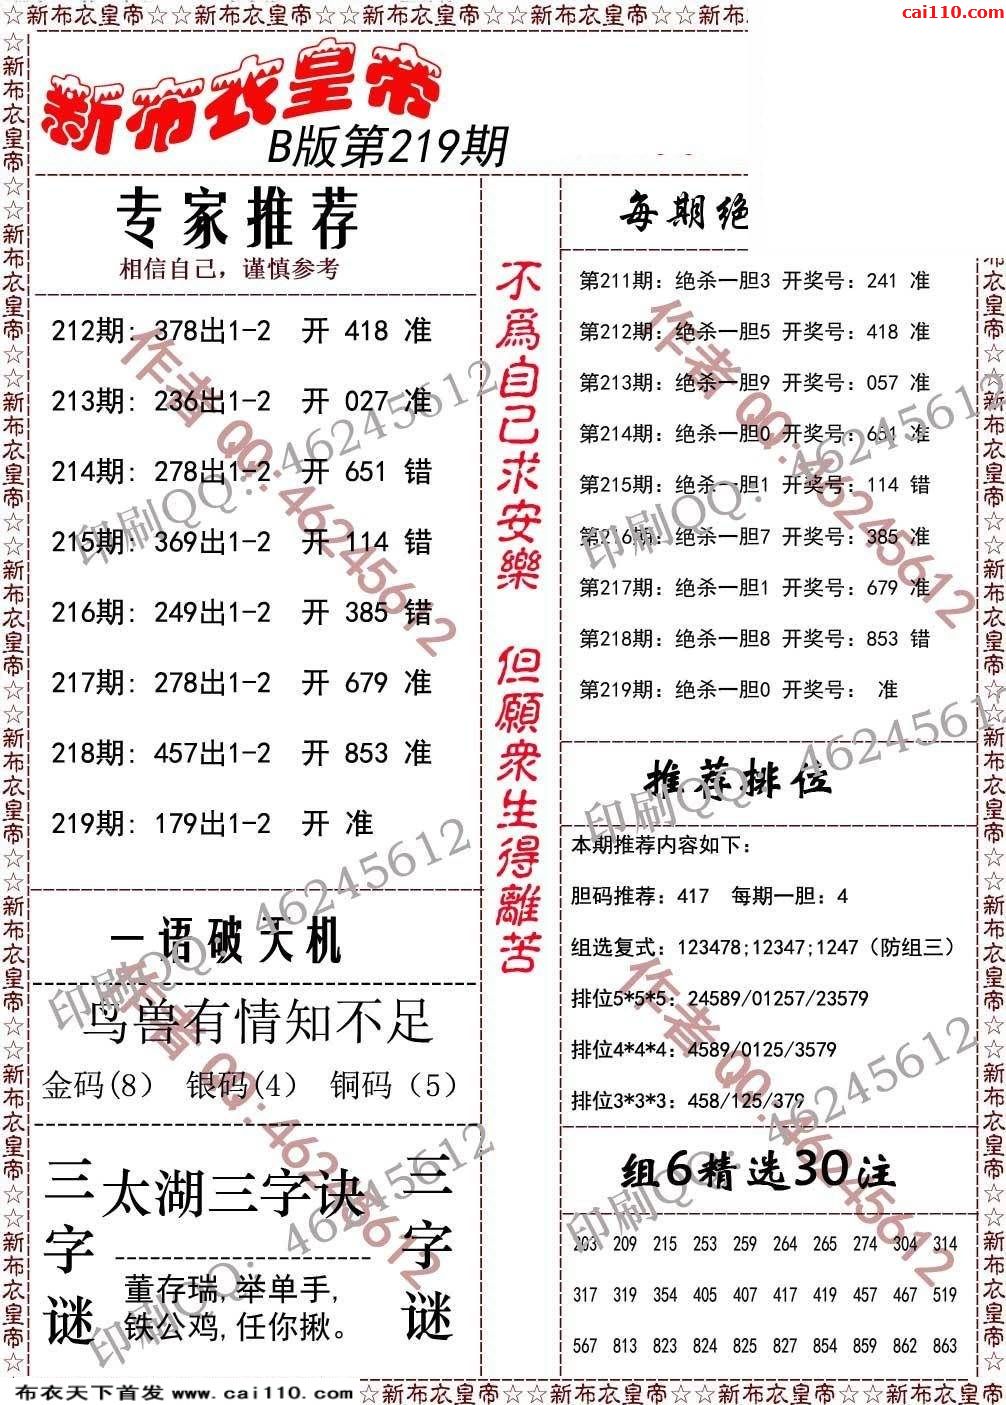 ☆新布衣皇帝☆☆新布衣皇帝☆☆新布衣皇帝☆☆新布衣皇帝☆☆新布
cai110.com
新布衣皇帝
B版第219期
专家推荐
相信自己，谨慎参考
212期: 378出1-2 开 418 准
213期: 236出1-2 开 027 准
214期: 278出1-2 开 651 错
215期: 369出1-2 开 114 错
216期: 249出1-2 开 385 错
217期: 278出1-2 开 679 准
218期: 457出1-2 开 853 准
219期: 179出1-2 开 准
一语破天机
鸟兽有情知不足
金码(8) 银码(4) 铜码（5）
三字谜
太湖三字诀
董存瑞,举单手,
铁公鸡,任你揪。
三字谜
不爲自己求安樂
但願衆生得離苦
每期绝
第211期: 绝杀一胆3 开奖号: 241 准
第212期: 绝杀一胆5 开奖号: 418 准
第213期: 绝杀一胆9 开奖号: 057 准
第214期: 绝杀一胆0 开奖号: 651 准
第215期: 绝杀一胆1 开奖号: 114 错
第216期: 绝杀一胆7 开奖号: 385 准
第217期: 绝杀一胆1 开奖号: 679 准
第218期: 绝杀一胆8 开奖号: 853 错
第219期: 绝杀一胆0 开奖号: 准
推荐排位
本期推荐内容如下:
胆码推荐: 417 每期一胆: 4
组选复式: 123478;12347;1247（防组三）
排位5*5*5: 24589/01257/23579
排位4*4*4: 4589/0125/3579
排位3*3*3: 458/125/379
组6精选30注
203 209 215 253 259 264 265 274 304 314
317 319 354 405 407 417 419 457 467 519
567 813 823 824 825 827 854 859 862 863
作者QQ:46245612
印刷QQ: 46245612
作者QQ:46245612
印刷QQ: 46245612
印刷QQ: 46245612
作者QQ:46245612
印刷QQ: 46245612
印刷QQ: 46245612
作者QQ:46245612
印刷QQ: 46245612
布衣天下首发 www.cai110.com
☆新布衣皇帝☆☆新布衣皇帝☆☆新布衣皇帝☆☆新布衣皇帝☆